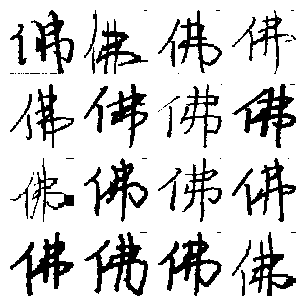 佛佛佛佛
佛佛佛佛
佛佛佛佛
佛佛佛佛